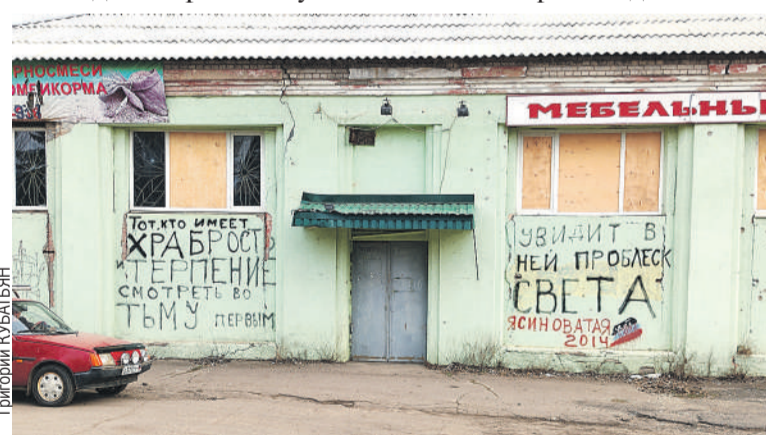 РНОСМЕСИ
ОМБИКОРМА
МЕБЕЛЬНЫ
ТОТ, КТО ИМЕЕТ
ХРАБРОСТЬ
И ТЕРПЕНИЕ
СМОТРЕТЬ ВО
ТЬМУ ПЕРВЫМ
УВИДИТ В
НЕЙ ПРОБЛЕСК
СВЕТА
ЯСИНОВАТАЯ
2014
Григорий КУБАТЬЯН